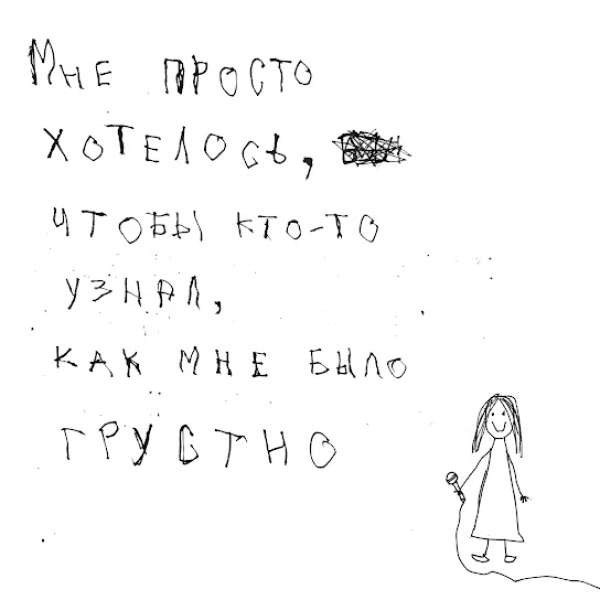 Мне просто
хотелось,
чтобы кто-то
узнал,
как мне было
грустно